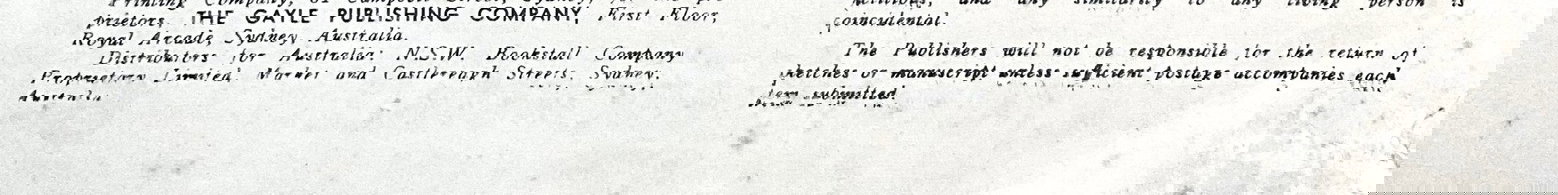 Printing Company, of Campbell Street, Sydney, for the pro-
prietors, THE SAYLE PUBLISHING COMPANY, First Floor,
Royal Arcade, Sydney, Australia.
Distributors for Australia: N.S.W. Bookstall Company
Proprietary Limited, Market and Castlereagh Streets, Sydney,
Australia.
fictitious, and any similarity to any living person is
coincidental.
The Publishers will not be responsible for the return of
sketches or manuscript unless sufficient postage accompanies each
item submitted.